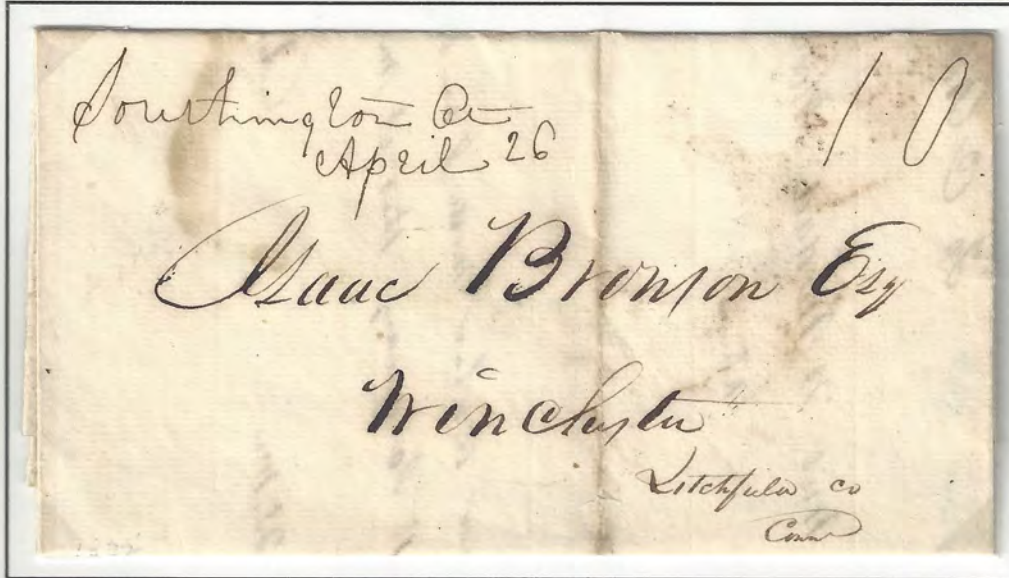 Southington Ct
April 26
10
Isaac Bronson Esq
Winchester
Litchfield Co
Conn